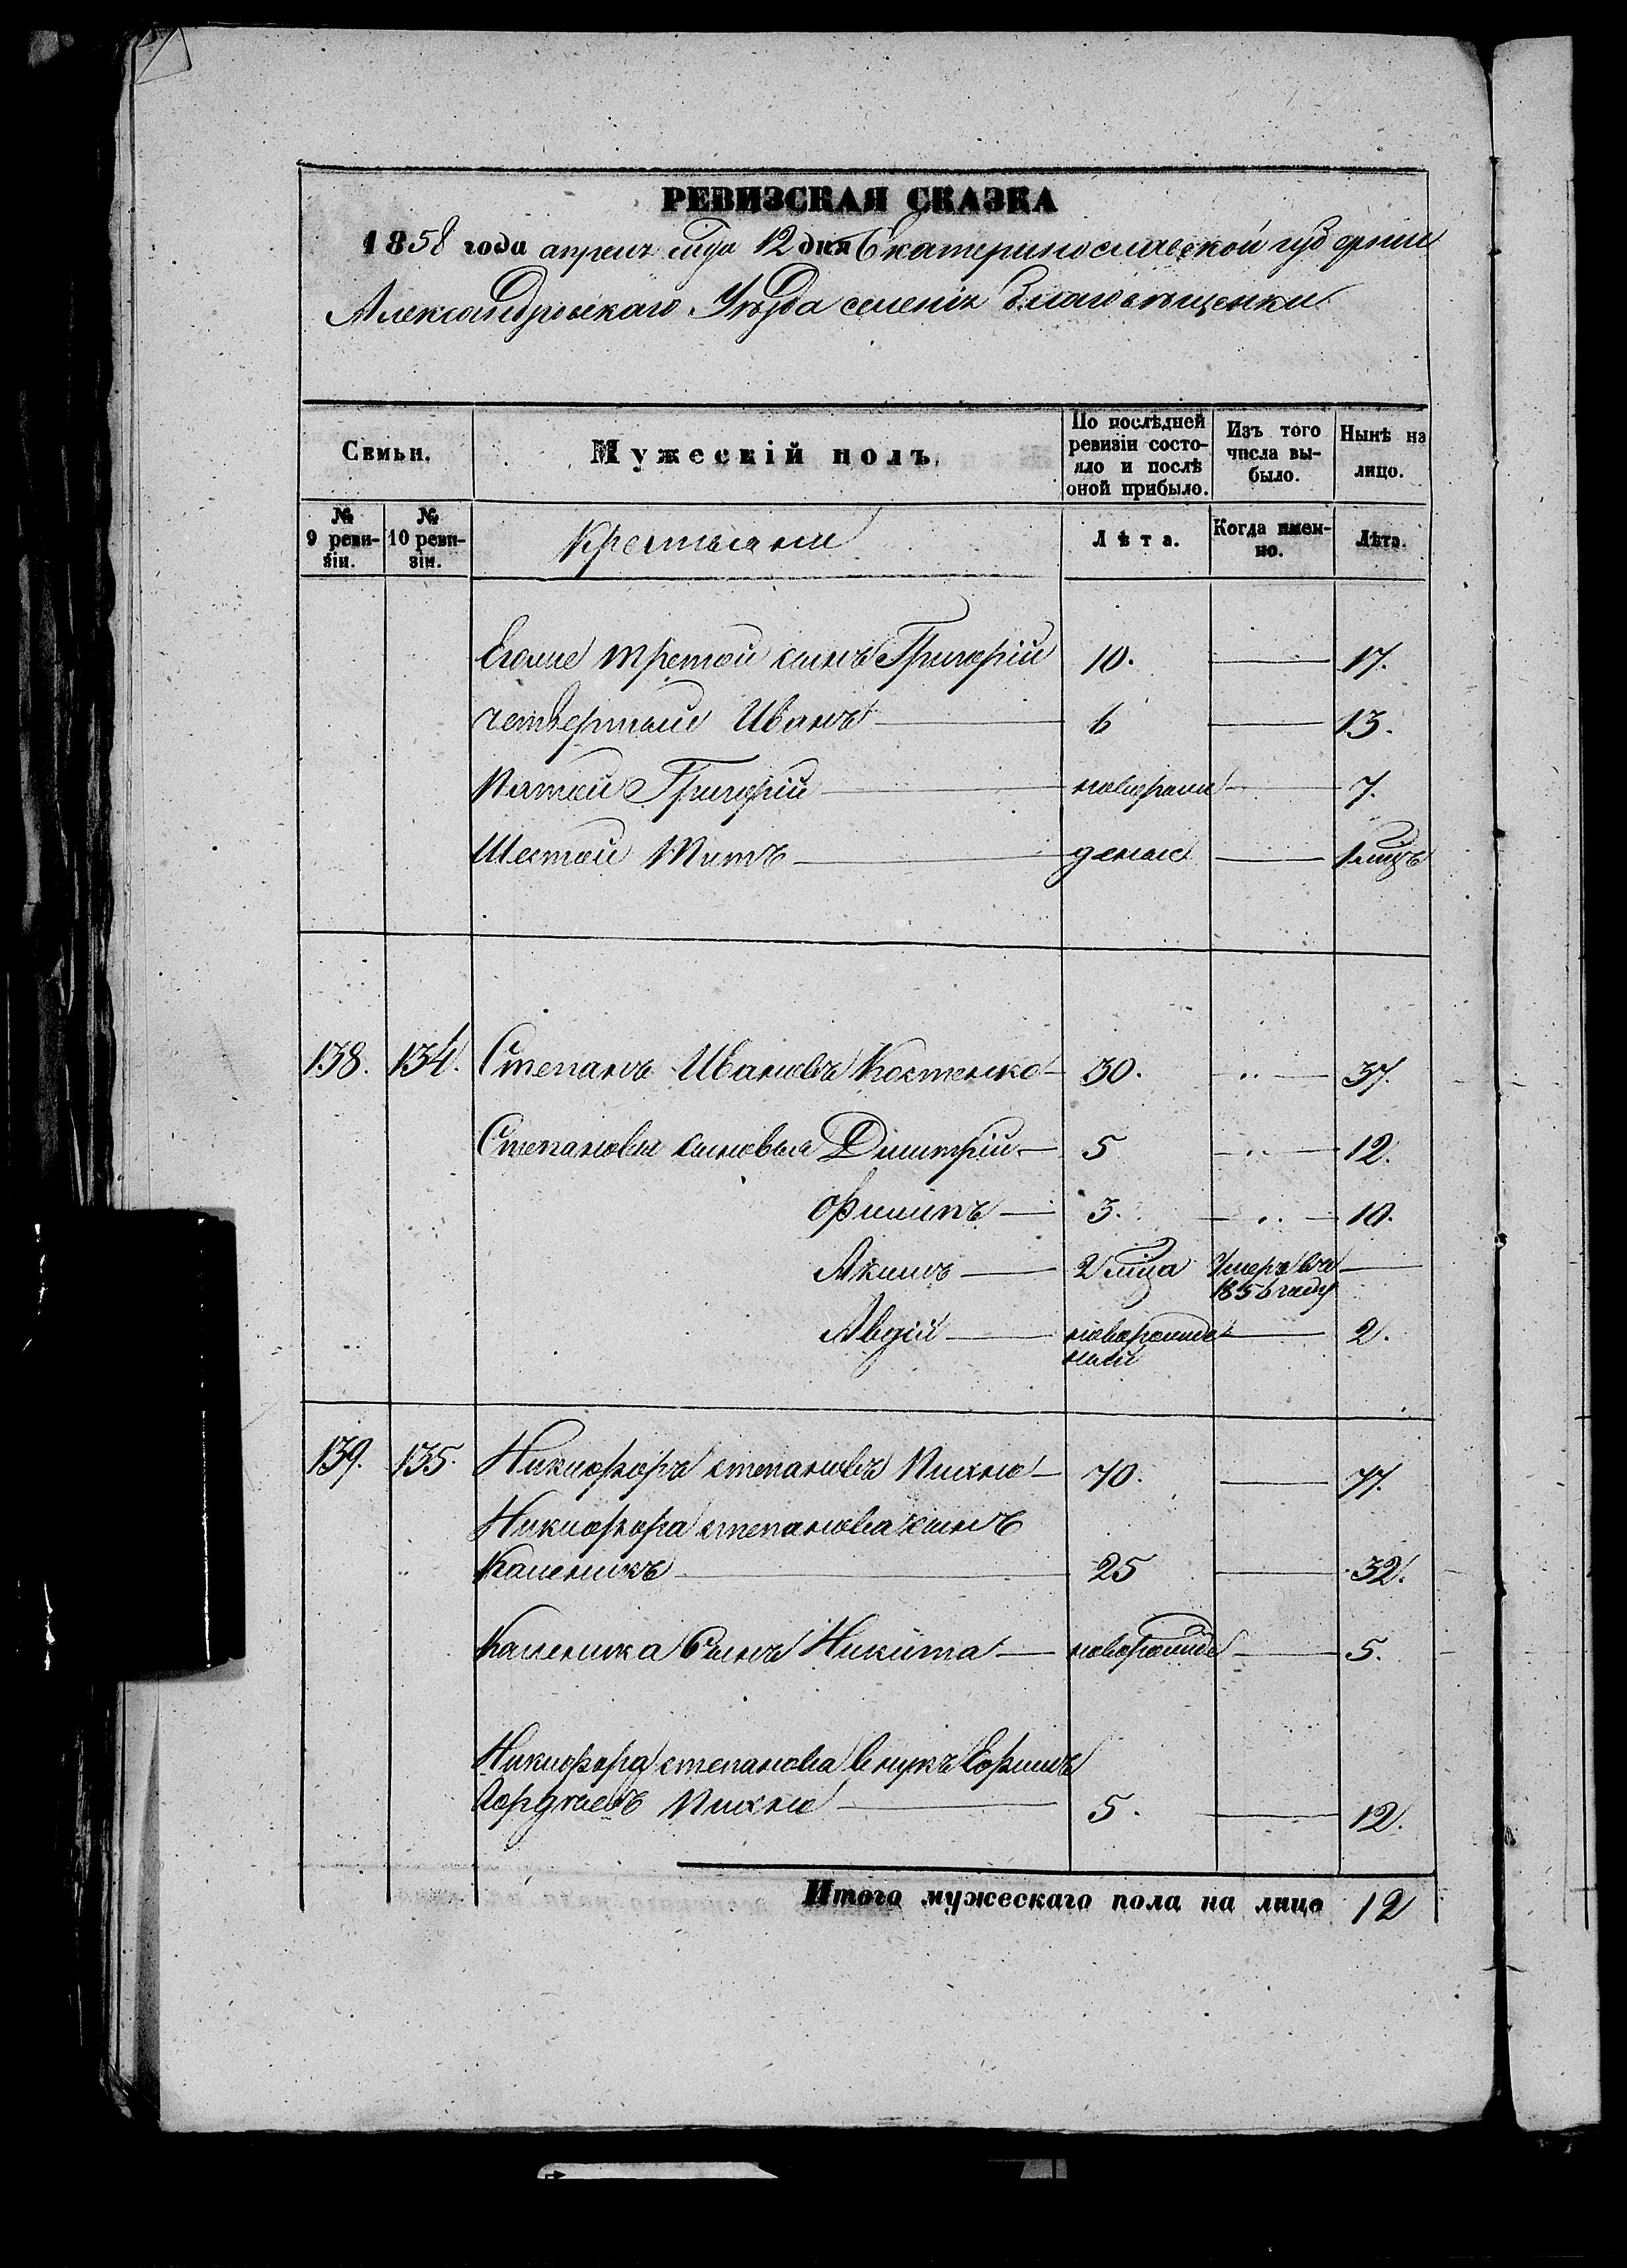 РЕВИЗСКАЯ СКАЗКА
1858 года апреля мца 12 дня Екатеринославской губернии
Александровскаго Уѣзда селенія Благовѣщенки
Семьи. Мужескій полъ. По послѣдней ревизіи состояло и послѣ оной прибыло. Изъ того числа выбыло. Нынѣ на лицо.
№ 9 ревизіи. № 10 ревизіи. Крестьяне Лѣта. Когда именно. Лѣта.
Егоже третой сынъ Григорій 10. 17.
четвертый Иванъ 6 13.
Пятой Григорій новорожд 7.
Шестой Титъ деный 1 мцъ
138. 134. Степанъ Ивановъ Костенко 30. 37.
Степановы сыновья Димитрій 5 12.
Филипъ 3. 10.
Акимъ 2 мца Умеръ въ 1856 году
Авдій новорожденый 2.
139. 135. Никифоръ степановъ Пихно 70. 77.
Никифора степанова сынъ
Каленикъ 25 32.
Каленика Сынъ Никита новорожд 5.
Никифора степанова внукъ Ефимъ
Гордѣевъ Пихно 5. 12.
Итого мужескаго пола на лицо 12